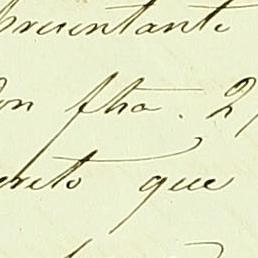 presentante
on fha. 2
creto que